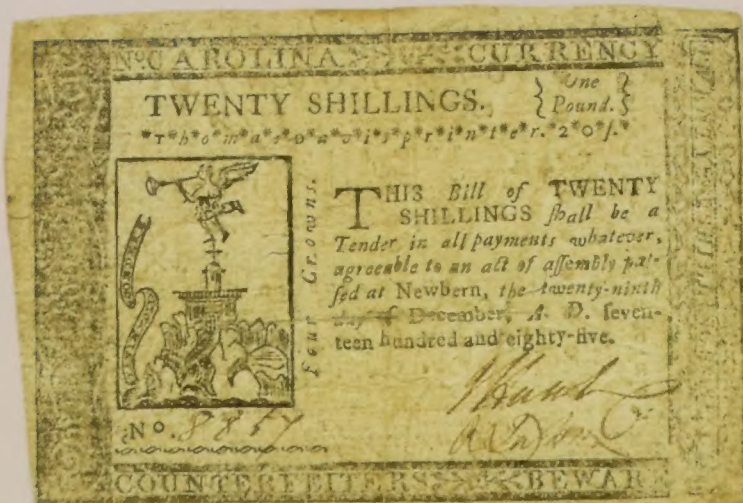 No. CAROLINA CURRENCY
TWENTY SHILLINGS. { One Pound. }
*T*h*o*m*a*s*D*a*v*i*s*p*r*i*n*t*e*r.*2*0*/.*
Four Crowns.
THIS Bill of TWENTY
SHILLINGS ſhall be a
Tender in all payments whatever,
agreeable to an act of aſſembly paſ-
ſed at Newbern, the twenty-ninth
day of December, A. D. ſeven-
teen hundred and eighty-five.
No. 8857
COUNTERFEITERS BEWAR